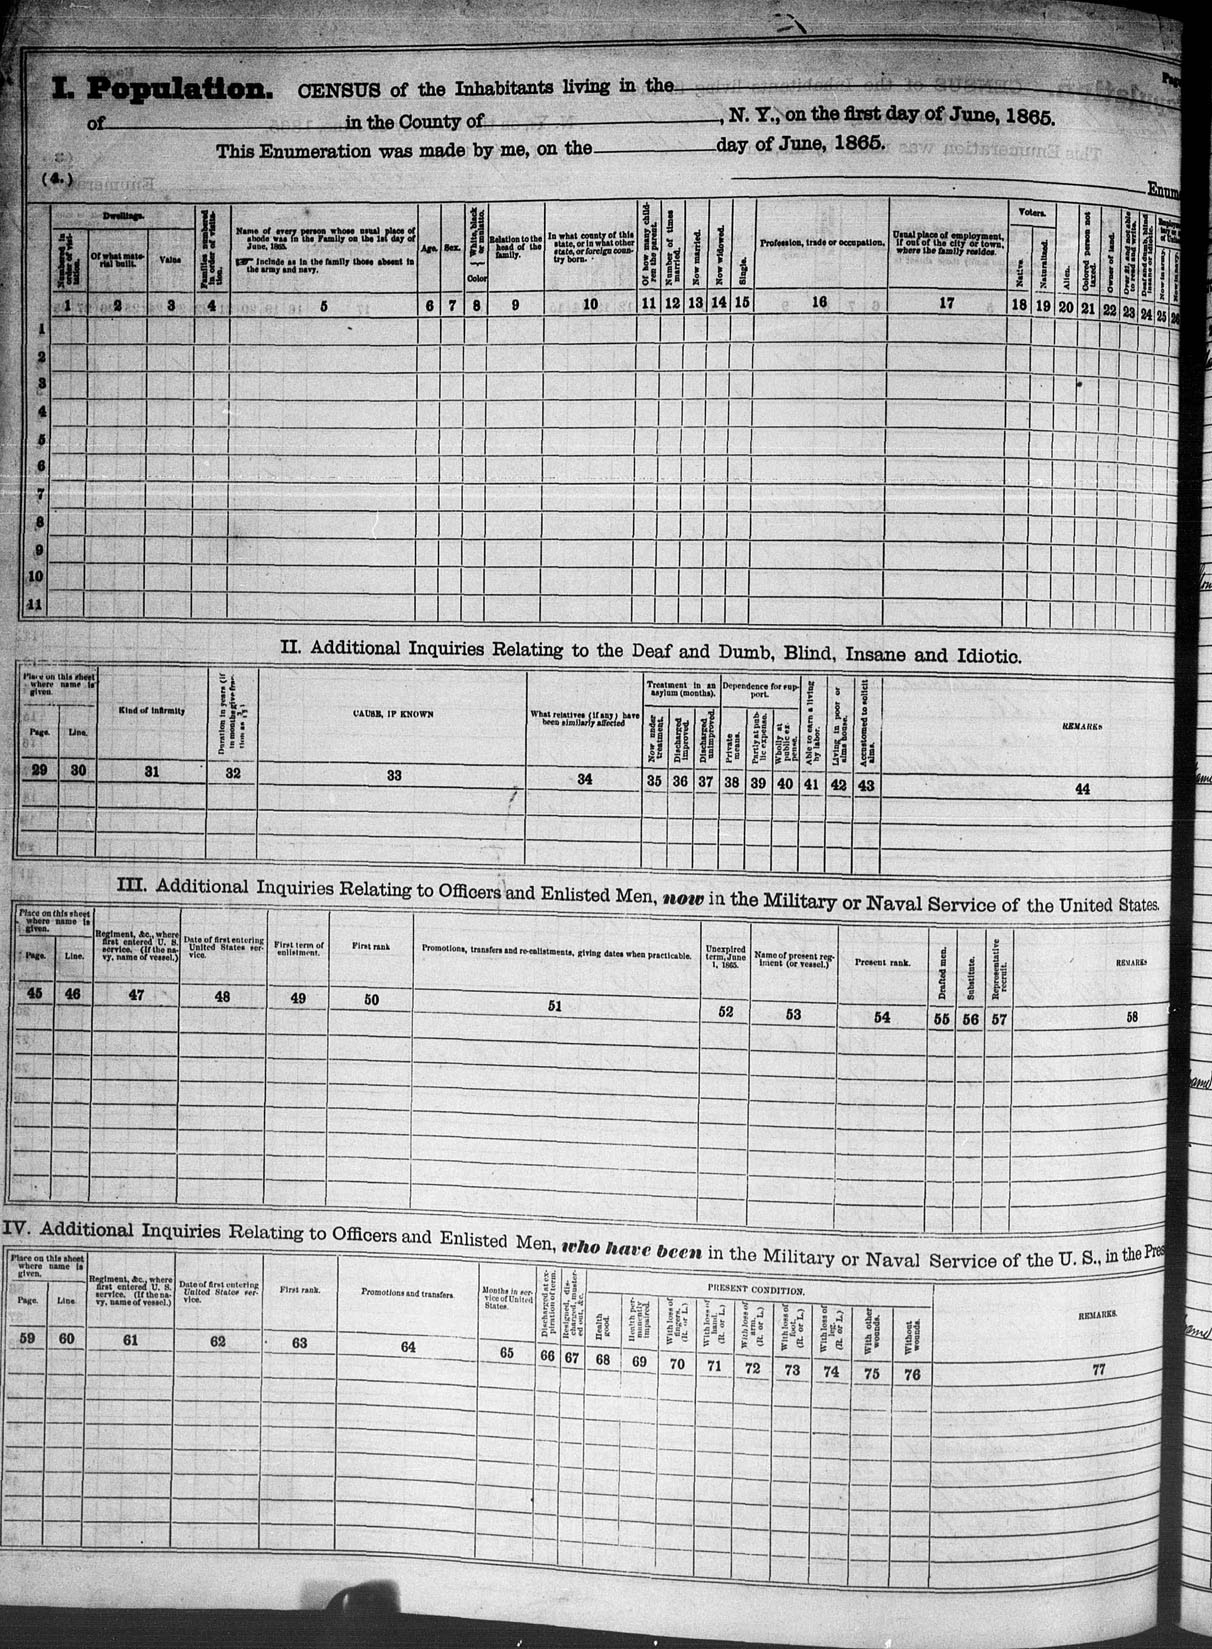 Page
I. Population. CENSUS of the Inhabitants living in the
of in the County of , N. Y., on the first day of June, 1865.
This Enumeration was made by me, on the day of June, 1865.
(4.)
Enum
Dwellings.
Numbered in order of visitation.
Of what material built.
Value
Families numbered in order of visitation.
Name of every person whose usual place of
abode was in the Family on the 1st day of
June, 1865.
☞ Include as in the family those absent in
the army and navy.
Age.
Sex.
White, black or mulatto.
Color
Relation to the
head of the
family.
In what county of this
state, or in what other
state, or foreign coun-
try born.
Of how many child-
ren the parent.
Number of times
married.
Now married.
Now widowed.
Single.
Profession, trade or occupation.
Usual place of employment,
if out of the city or town,
where the family resides.
Voters.
Native.
Naturalized.
Alien.
Colored person not
taxed.
Owner of land.
Over 21, and not able
to read and write.
Deaf and dumb, blind
insane or idiotic.
Now in army
1 2 3 4 5 6 7 8 9 10 11 12 13 14 15 16 17 18 19 20 21 22 23 24 25 26
1
2
3
4
5
6
7
8
9
10
11
II. Additional Inquiries Relating to the Deaf and Dumb, Blind, Insane and Idiotic.
Place on this sheet
where name is
given.
Page.
Line.
Kind of infirmity
Duration in years (if
in months give frac-
CAUSE, IF KNOWN
What relatives (if any) have
been similarly affected
Treatment in an
asylum (months).
Now under
treatment.
Discharged
improved.
Discharged
unimproved.
Dependence for sup-
port.
Private
means.
Partly at pub-
lic expense.
Wholly at
public ex-
pense.
Able to earn a living
by labor.
Living in poor or
alms house.
Accustomed to solicit
alms.
REMARKS
29 30 31 32 33 34 35 36 37 38 39 40 41 42 43 44
III. Additional Inquiries Relating to Officers and Enlisted Men, now in the Military or Naval Service of the United States.
Place on this sheet
where name is
given.
Page.
Line.
Regiment, &c., where
first entered U. S.
service. (If the na-
vy, name of vessel.)
Date of first entering
United States ser-
vice.
First term of
enlistment.
First rank
Promotions, transfers and re-enlistments, giving dates when practicable.
Unexpired
term, June
1, 1865.
Name of present reg-
iment (or vessel.)
Present rank.
Drafted men.
Substitute.
Representative
recruit.
REMARKS
45 46 47 48 49 50 51 52 53 54 55 56 57 58
IV. Additional Inquiries Relating to Officers and Enlisted Men, who have been in the Military or Naval Service of the U. S., in the Pres
Place on this sheet
where name is
given.
Page.
Line
Regiment, &c., where
first entered U. S.
service. (If the na-
vy, name of vessel.)
Date of first entering
United States ser-
vice.
First rank.
Promotions and transfers.
Months in ser-
vice of United
States.
Discharged at ex-
piration of term.
Resigned, dis-
charged, muster-
ed out, &c.
PRESENT CONDITION.
Health
good.
Health per-
manently
impaired.
With loss of
fingers.
(R. or L.)
With loss of
hand.
(R. or L.)
With loss of
arm.
(R. or L.)
With loss of
foot.
(R. or L.)
With loss of
leg.
(R. or L.)
With other
wounds.
Without
wounds.
REMARKS.
59 60 61 62 63 64 65 66 67 68 69 70 71 72 73 74 75 76 77